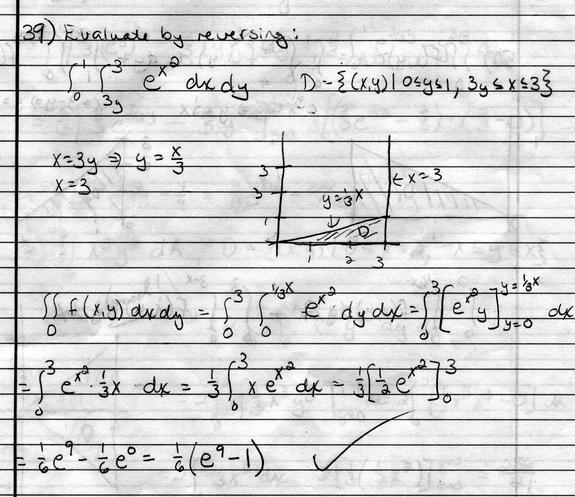 39) Evaluate by reversing:
∫₀¹ ∫₃ᵧ³ e^{x²} dx dy   D = {(x,y) | 0≤y≤1, 3y≤x≤3}
x=3y ⇒ y = x/3
x=3
3
3
1
y=⅓x
D
← x=3
1 2 3
∬_D f(x,y) dxdy = ∫₀³ ∫₀^{⅓x} e^{x²} dy dx = ∫₀³ [e^{x²} y]_{y=0}^{y=⅓x} dx
= ∫₀³ e^{x²} · ⅓x dx = ⅓ ∫₀³ x e^{x²} dx = ⅓[½ e^{x²}]₀³
= ⅙e⁹ - ⅙e⁰ = ⅙(e⁹-1) ✓